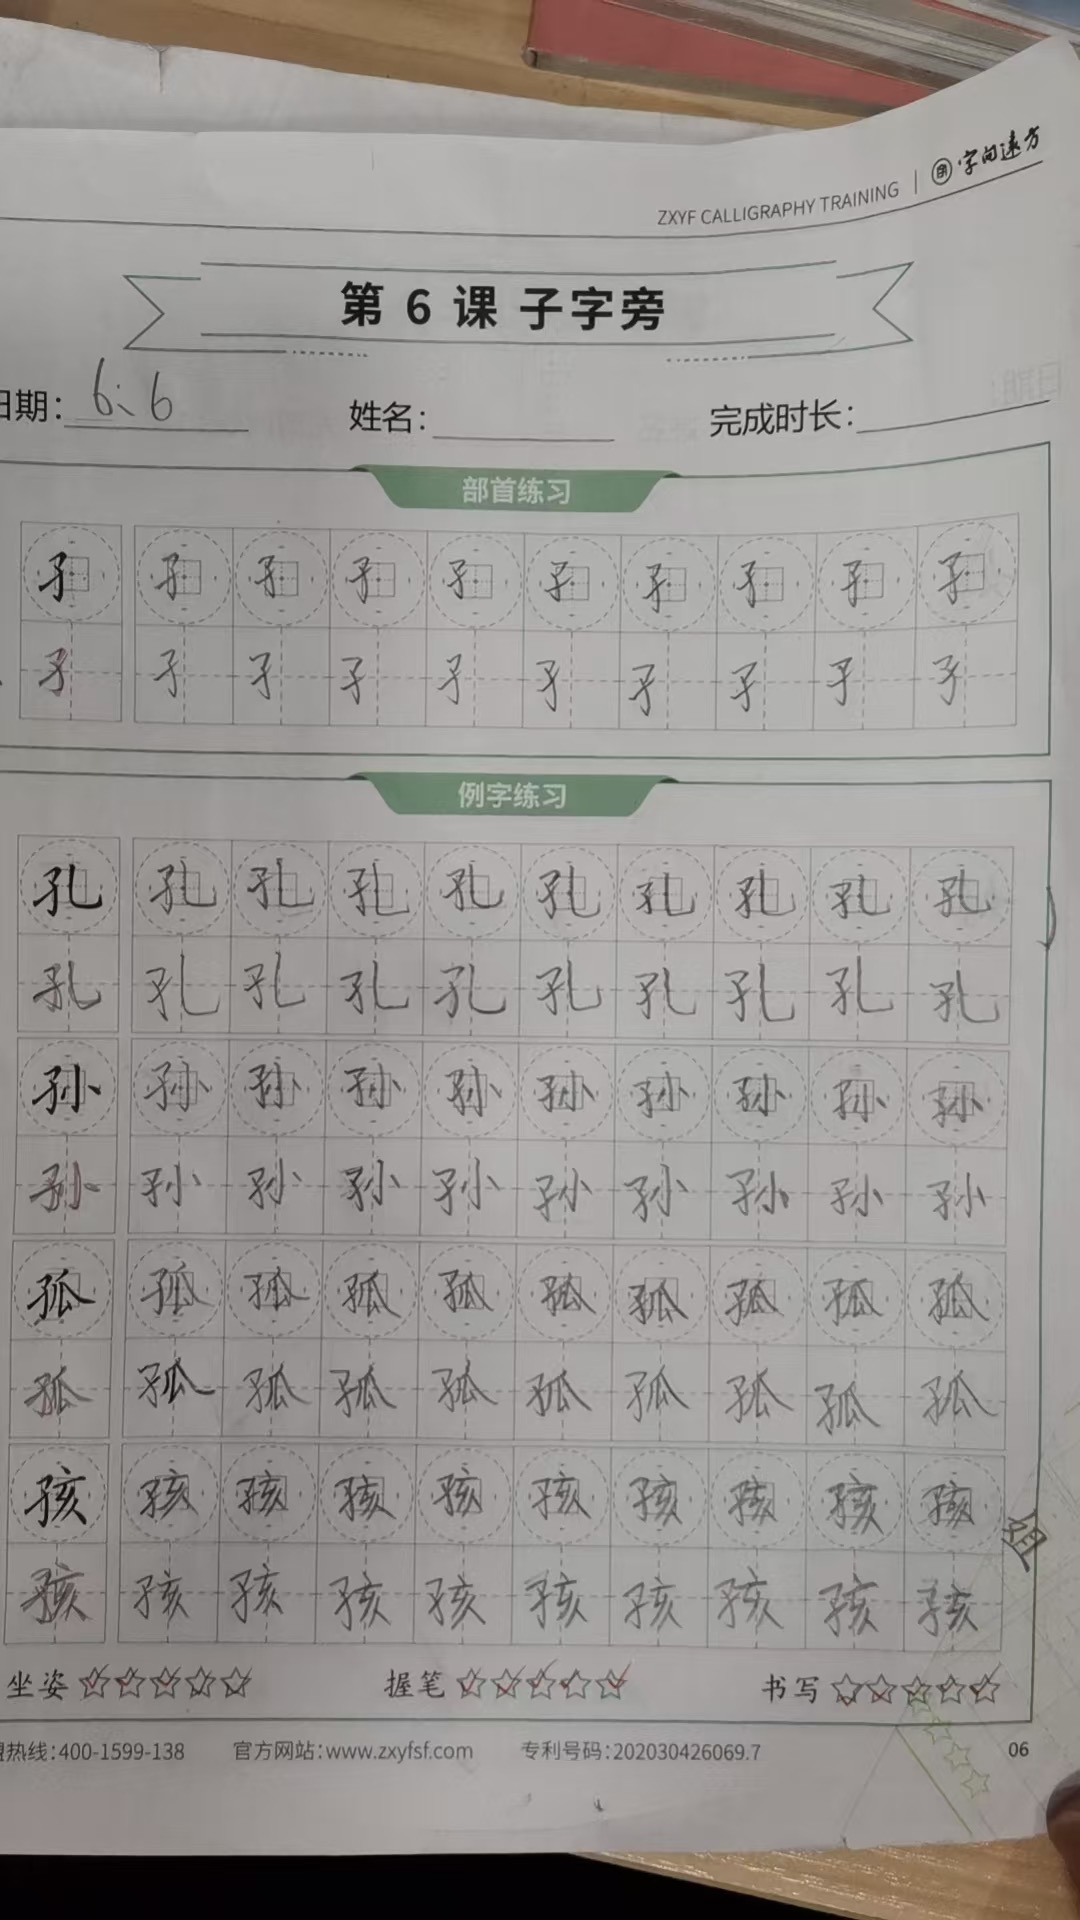 ZXYF CALLIGRAPHY TRAINING 字向远方
第 6 课 子字旁
日期: 6、6 姓名: 完成时长:
部首练习
孑 孑 孑 孑 孑 孑 孑 孑 孑 孑
孑 孑 孑 孑 孑 孑 孑 孑 孑 孑
例字练习
孔 孔 孔 孔 孔 孔 孔 孔 孔 孔
孔 孔 孔 孔 孔 孔 孔 孔 孔 孔
孙 孙 孙 孙 孙 孙 孙 孙 孙 孙
孙 孙 孙 孙 孙 孙 孙 孙 孙 孙
孤 孤 孤 孤 孤 孤 孤 孤 孤 孤
孤 孤 孤 孤 孤 孤 孤 孤 孤 孤
孩 孩 孩 孩 孩 孩 孩 孩 孩 孩
孩 孩 孩 孩 孩 孩 孩 孩 孩 孩
坐姿 ☆☆☆☆☆ 握笔 ☆☆☆☆☆ 书写 ☆☆☆☆☆
盟热线:400-1599-138 官方网站:www.zxyfsf.com 专利号码:202030426069.7 06